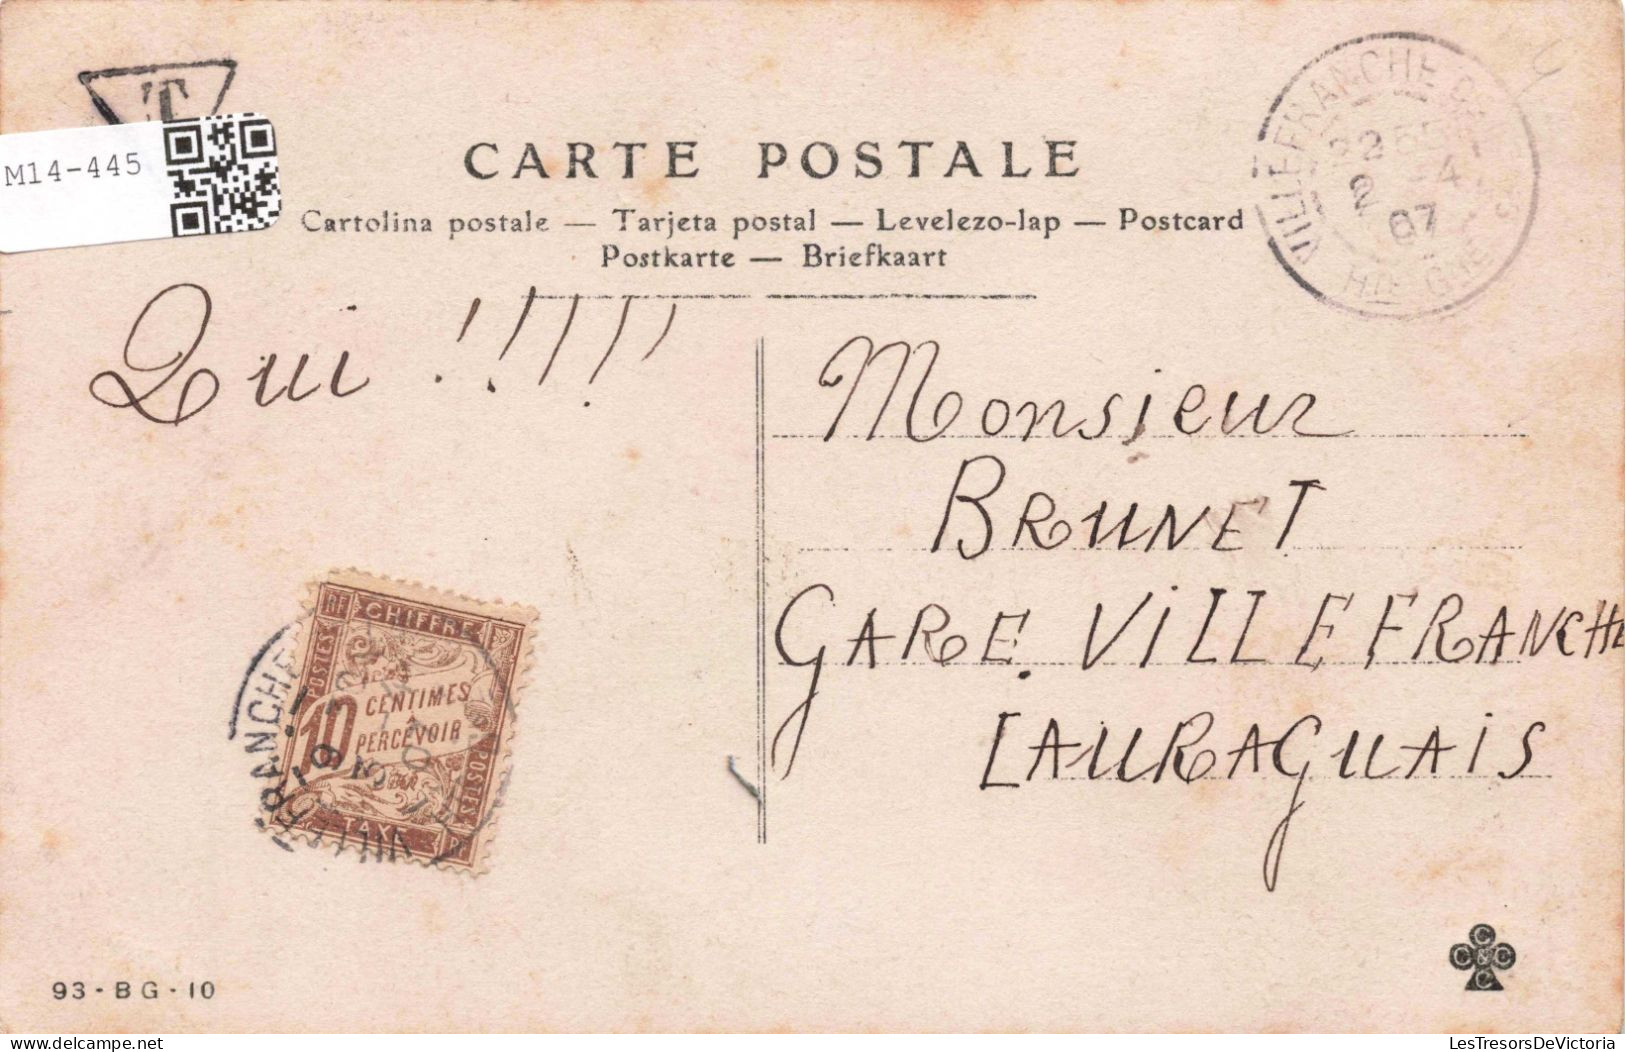 T
M14-445
CARTE POSTALE
Cartolina postale — Tarjeta postal — Levelezo-lap — Postcard
Postkarte — Briefkaart
VILLEFRANCHE DE
22
4
2
07
Hte
Qui !!!!!
Monsieur
BRUNET
GARE. VILLEFRANCHE
LAURAGUAIS
RF
CHIFFRE
POSTES
10
CENTIMES
À PERCEVOIR
POSTES
TAXE
RF
93 - BG - 10
C
C & C
C
LesTresorsDeVictoria
delcampe.net